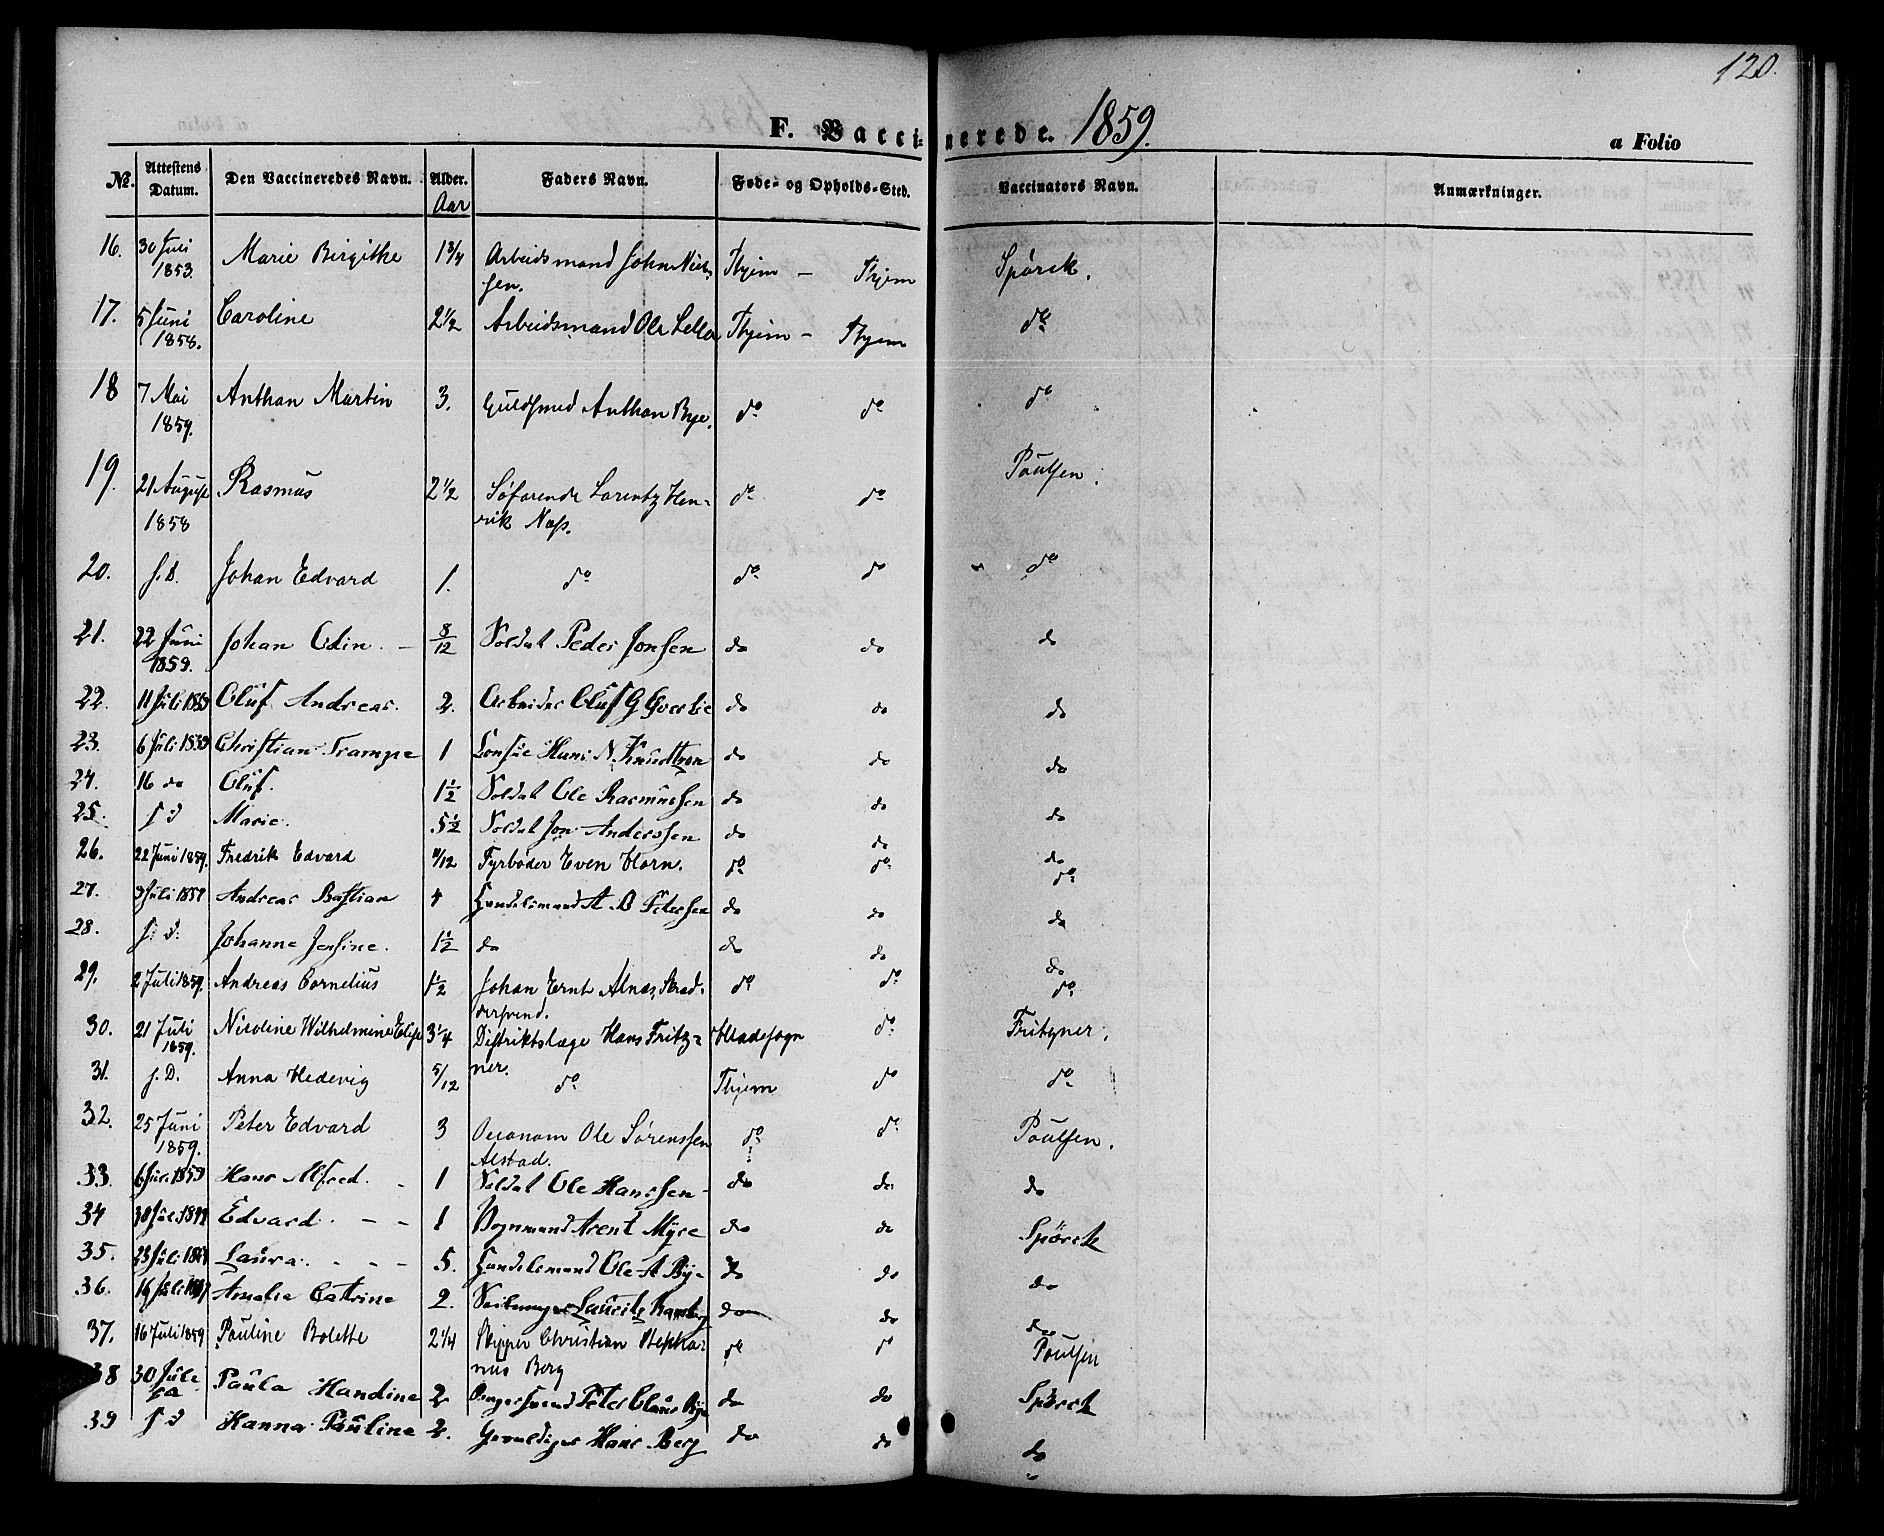 120.
F. Vaccinerede. 1859.
a Folio
No. Attestens Datum. Den Vaccineredes Navn. Alder. Faders Navn. Føde- og Opholds-Sted. Vaccinators Navn. Anmærkninger.
Aar
16. 30 Juli 1853. Marie Birgitke 1 3/4 Arbeidsmand John Nielsen. Thjem – Thjem Spørck.
17. 5 Juni 1858. Caroline 2 1/2 Arbeidsmand Ole Lello Thjem – Thjem do
18 7 Mai 1859. Anthon Martin 3. Guldsmed Anthon Bye. do do do
19. 21 August 1858 Rasmus 2 1/2 Søfarende Lorentz Henrik Næss. do do Poulsen.
20. s. D. Johan Edvard 1. do do do do
21. 22 Juni 1859. Johan Odin. – 8/12 Soldat Peder Jonsen do do do
22. 11 Juli 1859 Oluf Andreas. 2. Arbeider Oluf G do do do
23. 6 Juli 1859 Christian Trampe 1 Consul Hans N. Knudtzon do do do
24. 16 do Oluf. 1 1/2 Soldat Ole Rasmussen do do do
25. s d Marie. 5 1/2 Soldat Jon Anderssen do do do
26. 22 Juni 1859. Fredrik Edvard /12 Fyrbøder Even Horn. do do do
27. 3 Juli 1859 Andreas Bastian 4 Handelsmand A. B Petersen do do do
28. s. d. Johanne Jensine. 1 1/2 do do do do
29. 2 Juli 1859. Andreas Cornelius 1 1/2 Johan Ernt Alnæs, Skraddersvend. do do do
30. 21 Juli 1859. Nicoline Wilhelmine Elise 3 1/4 Distriktslæge Hans Fritzner. do Fritzner.
31. s. D. Anna Hedevig 5/12 do Thjem do do
32. 25 Juni 1859. Peter Edvard 3 Oeconom Ole Sørenssen Alstad. do do Poulsen.
33. 6 Juli 1859 Hans Alfred. 1 Soldat Ole Hanssen do do do
34 30 Juli Edvard. – – 1 Vognmand Arent Myre do do Spørck
35. 23 Juli Laura. – – – 5. Handelsmand Ole A Bye do do do
36. 16 Juli Amalie Catrine 2. Seilmager Lauritz do do do
37. 16 Juli 1859 Pauline Bolette 2 1/4 Skipper Christian Stephanus Berg do do Poulsen
38 30 Juli Paula Handine 2 Peter Claus Bye do do Spørck
39 s d Hanna Pauline 2. Hans Berg do do do